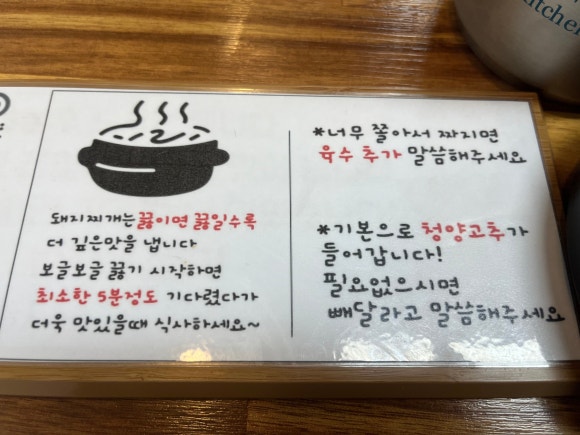 돼지찌개는 끓이면 끓일수록
더 깊은맛을 냅니다
보글보글 끓기 시작하면
최소한 5분정도 기다렸다가
더욱 맛있을때 식사하세요~
*너무 쫄아서 짜지면
육수 추가 말씀해주세요
*기본으로 청양고추가
들어갑니다!
필요없으시면
빼달라고 말씀해주세요